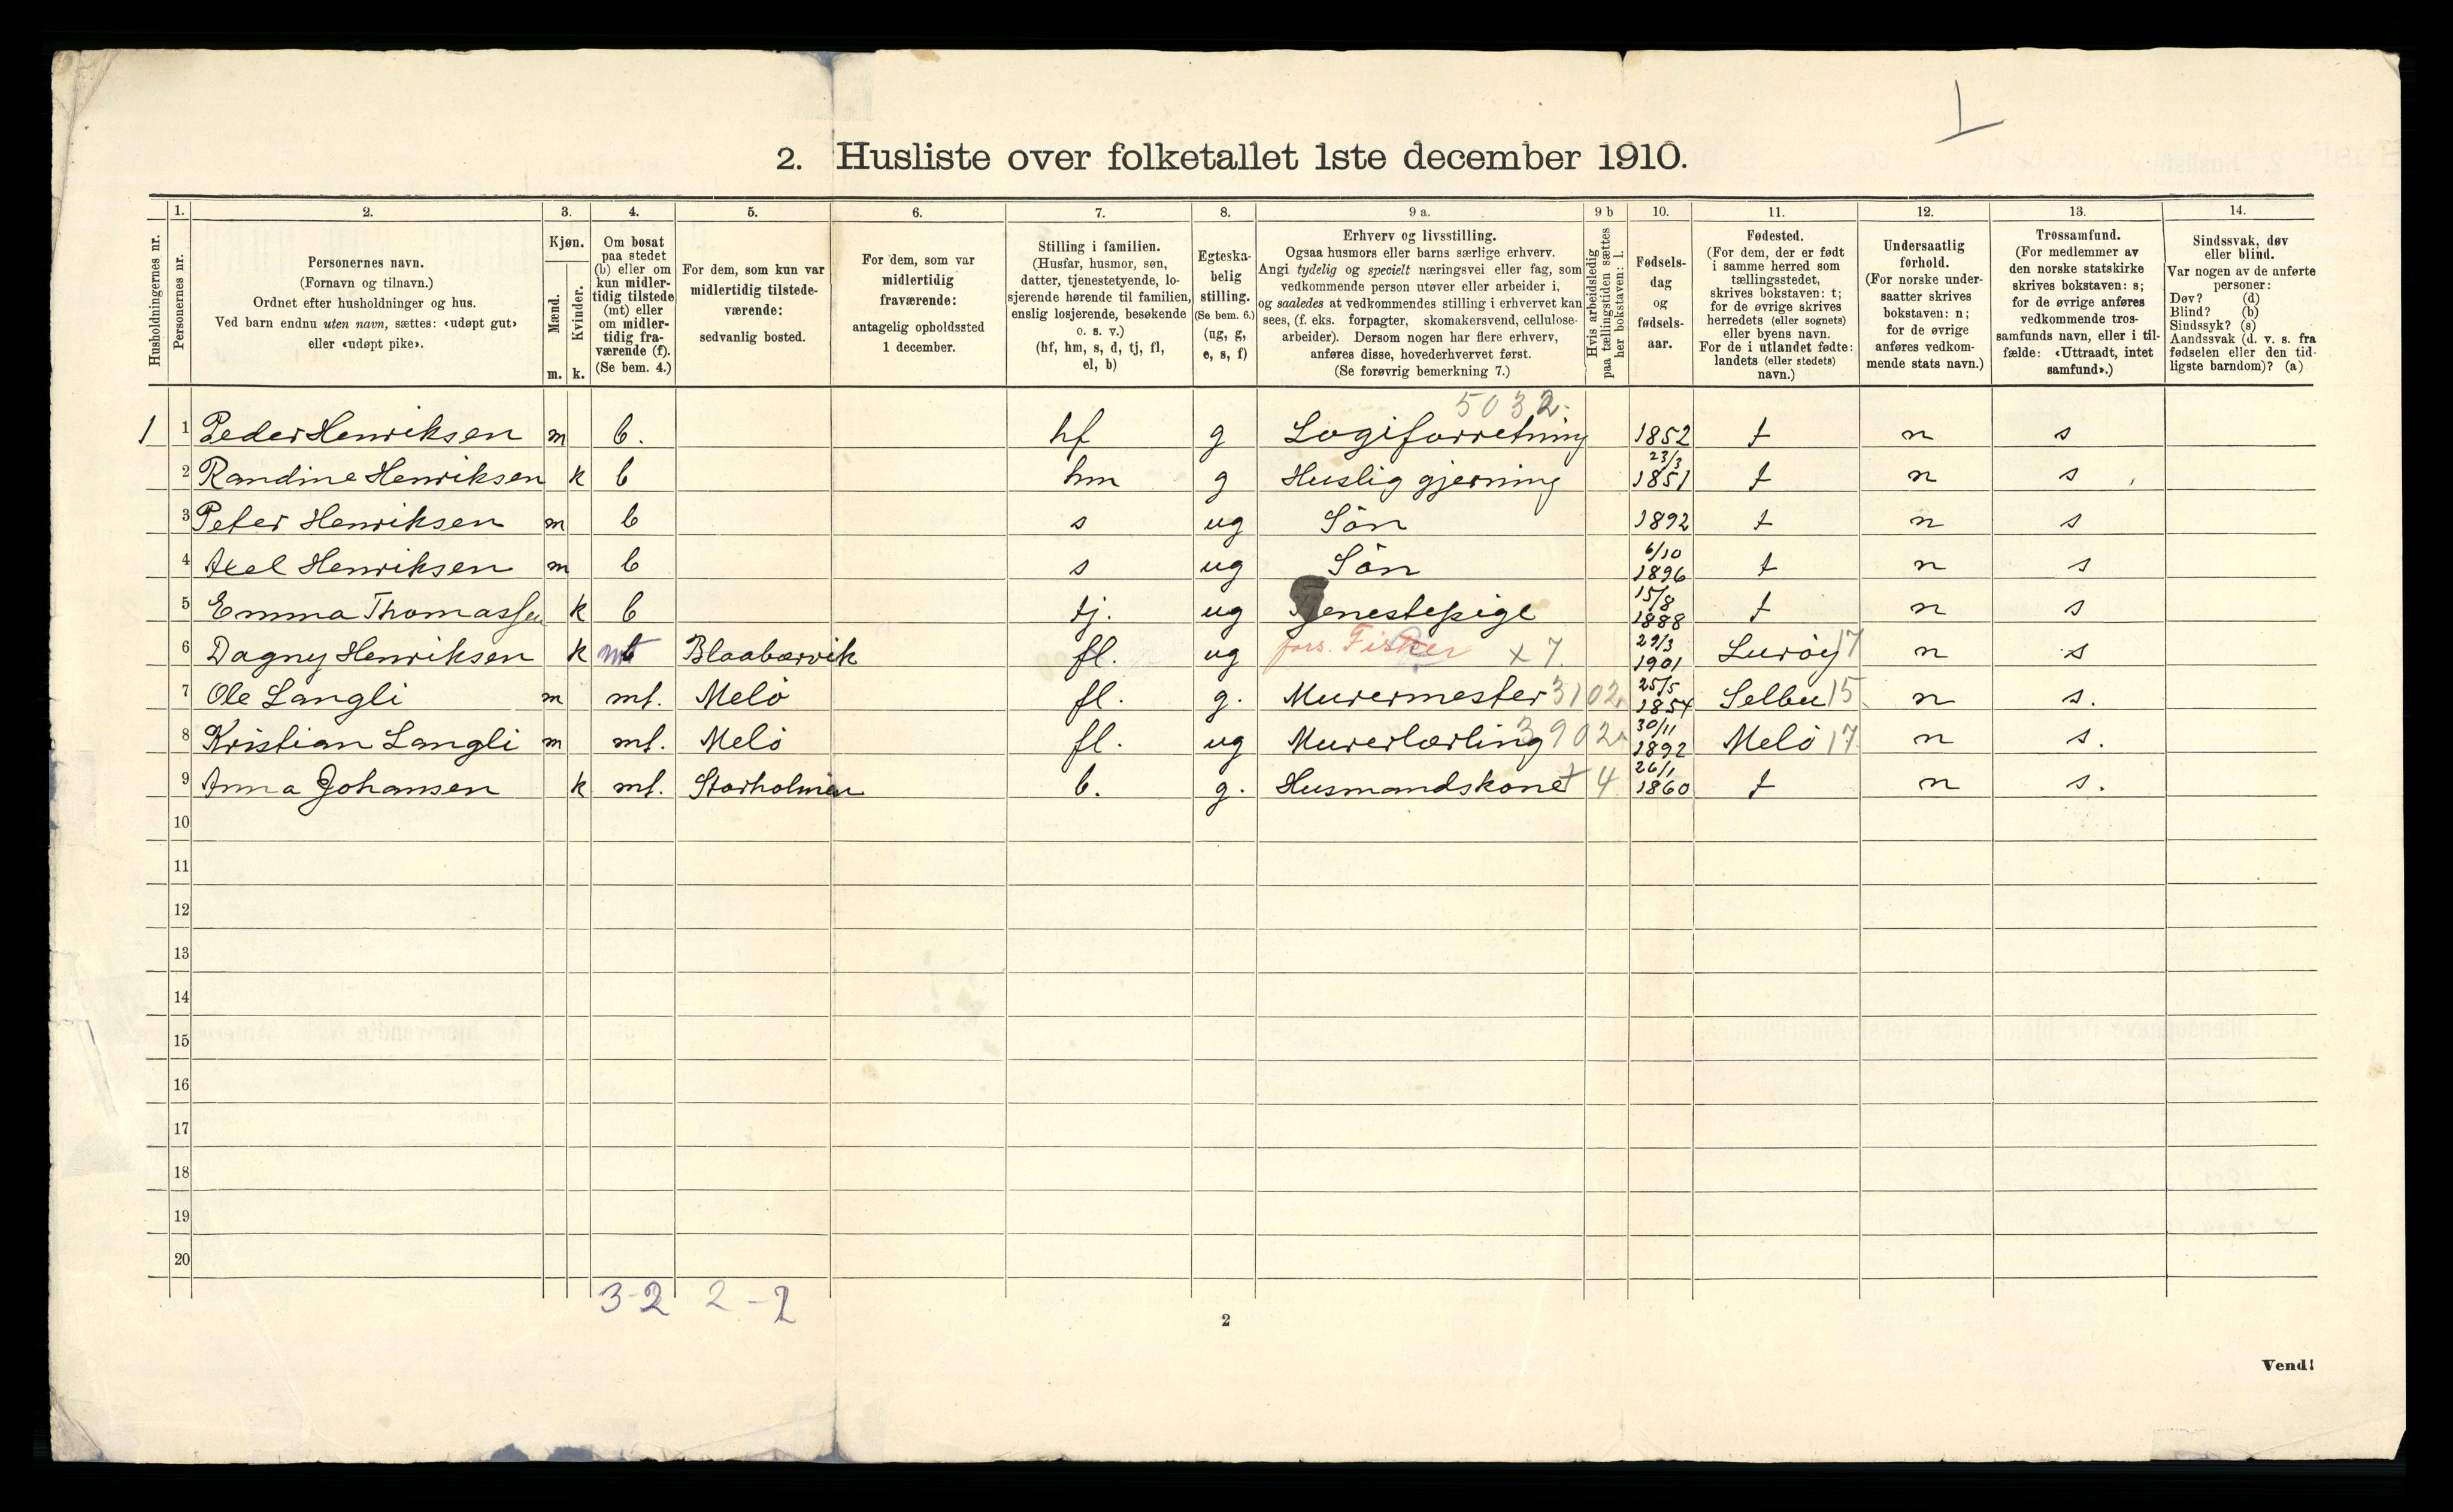 1
2. Husliste over folketallet 1ste december 1910.
Husholdningernes nr.
1.
Personernes nr.
2.
Personernes navn.
(Fornavn og tilnavn.)
Ordnet efter husholdninger og hus.
Ved barn endnu uten navn, sættes: «udøpt gut»
eller «udøpt pike».
3.
Kjøn.
Mænd.
Kvinder.
m. k.
4.
Om bosat
paa stedet
(b) eller om
kun midler-
tidig tilstede
(mt) eller
om midler-
tidig fra-
værende (f).
(Se bem. 4.)
5.
For dem, som kun var
midlertidig tilstede-
værende:
sedvanlig bosted.
6.
For dem, som var
midlertidig
fraværende:
antagelig opholdssted
1 december.
7.
Stilling i familien.
(Husfar, husmor, søn,
datter, tjenestetyende, lo-
sjerende hørende til familien,
enslig losjerende, besøkende
o. s. v.)
(hf, hm, s, d, tj, fl,
el, b)
8.
Egteska-
belig
stilling.
(Se bem. 6.)
(ug, g,
e, s, f)
9 a.
Erhverv og livsstilling.
Ogsaa husmors eller barns særlige erhverv.
Angi tydelig og specielt næringsvei eller fag, som
vedkommende person utøver eller arbeider i,
og saaledes at vedkommendes stilling i erhvervet kan
sees, (f. eks. forpagter, skomakersvend, cellulose-
arbeider). Dersom nogen har flere erhverv,
anføres disse, hovederhvervet først.
(Se forøvrig bemerkning 7.)
9 b
Hvis arbeidsledig
paa tællingstiden sættes
her bokstaven: l.
10.
Fødsels-
dag
og
fødsels-
aar.
11.
Fødested.
(For dem, der er født
i samme herred som
tællingsstedet,
skrives bokstaven: t;
for de øvrige skrives
herredets (eller sognets)
eller byens navn.
For de i utlandet fødte:
landets (eller stedets)
navn.)
12.
Undersaatlig
forhold.
(For norske under-
saatter skrives
bokstaven: n;
for de øvrige
anføres vedkom-
mende stats navn.)
13.
Trossamfund.
(For medlemmer av
den norske statskirke
skrives bokstaven: s;
for de øvrige anføres
vedkommende tros-
samfunds navn, eller i til-
fælde: «Uttraadt, intet
samfund».)
14.
Sindssvak, døv
eller blind.
Var nogen av de anførte
personer:
Døv? (d)
Blind? (b)
Sindssyk? (s)
Aandssvak (d. v. s. fra
fødselen eller den tid-
ligste barndom)? (a)
5032.
1 1 Peder Henriksen m b. hf g Logiforretning 1852 t n s
2 Randine Henriksen k b hm g Huslig gjerning 23/3 1851 t n s
3 Peter Henriksen m b s ug Sön 1892 t n s
4 Axel Henriksen m b s ug Sön 6/10 1896 t n s
5 Emma Thomassen k b tj. ug Tjenestepige 15/8 1888 t n s
6 Dagny Henriksen k mt Blaabærvik fl. ug fors. Fisker x 7 29/3 1901 Luröy 17 n s
7 Ole Langli m mt. Melö fl. g. Murermester 3102 25/5 1854 Selbu 15 n s.
8 Kristian Langli m mt. Melö fl. ug Murerlærling 3902 30/11 1892 Melö 17 n s.
9 Anna Johansen k mt. Storholmen b. g. Husmandskone x 4 26/1 1860 t n s.
10
11
12
13
14
15
16
17
18
19
20
3-2 2-2
2
Vend!